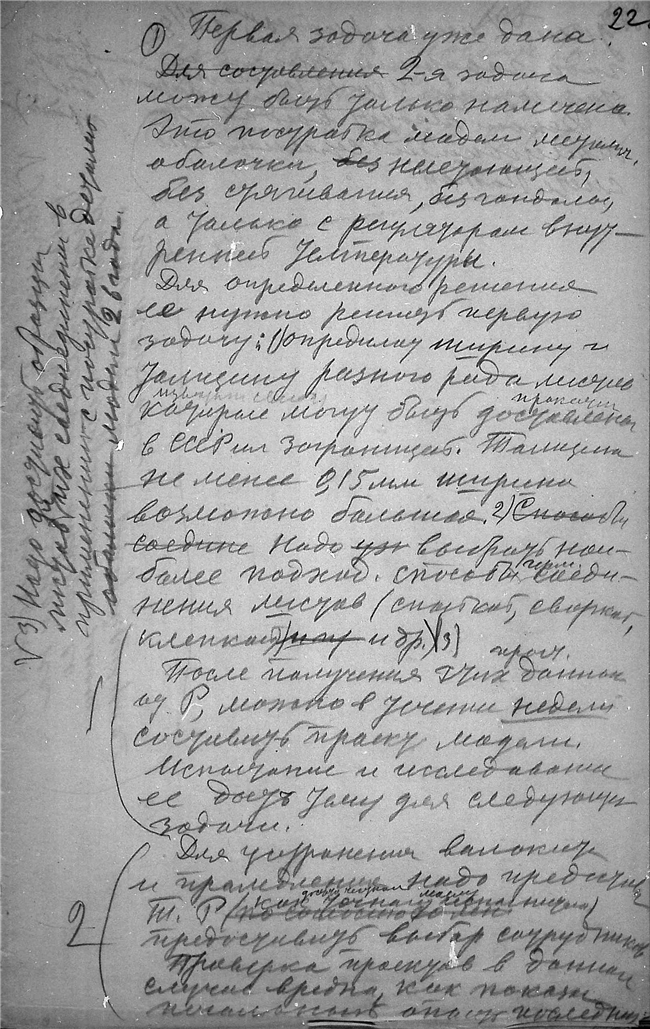 22
① Первая задача уже дана.
Для составления 2-я задача
может быть только намечена.
Это постройка модели металлич.
оболочки, без настоящей,
без стягивания, без гондолы,
а только с регулятором внут-
ренней температуры.
Для определенного решения
ее нужно решить первую
задачу: 1) определить ширину и
толщину разного рода листов
которые могут быть доставлены
в СССР или заграницей. Толщина
не менее 0,15 мм ширина
возможно большая. 2) Способы
соедине Надо уж выбрать наи-
более подход. способы соеди-
нения листов (спайкой, сваркой,
клепкой и др.) V 3)
После получения этих данных
от Р, можно в течении недели
составить проект модели.
Испытание и исследование
ее даст тему для следующей
задачи.
2
Для устранения волокиты
и промедления надо
Т. Р (
предоставить выбор сотрудников
Проверка проектов в данном
случае вредна, как показал
опыт последних
V 3) Надо доставить образцы
листов и их соединений в
применении с постройке деталей
модели 2 вида.